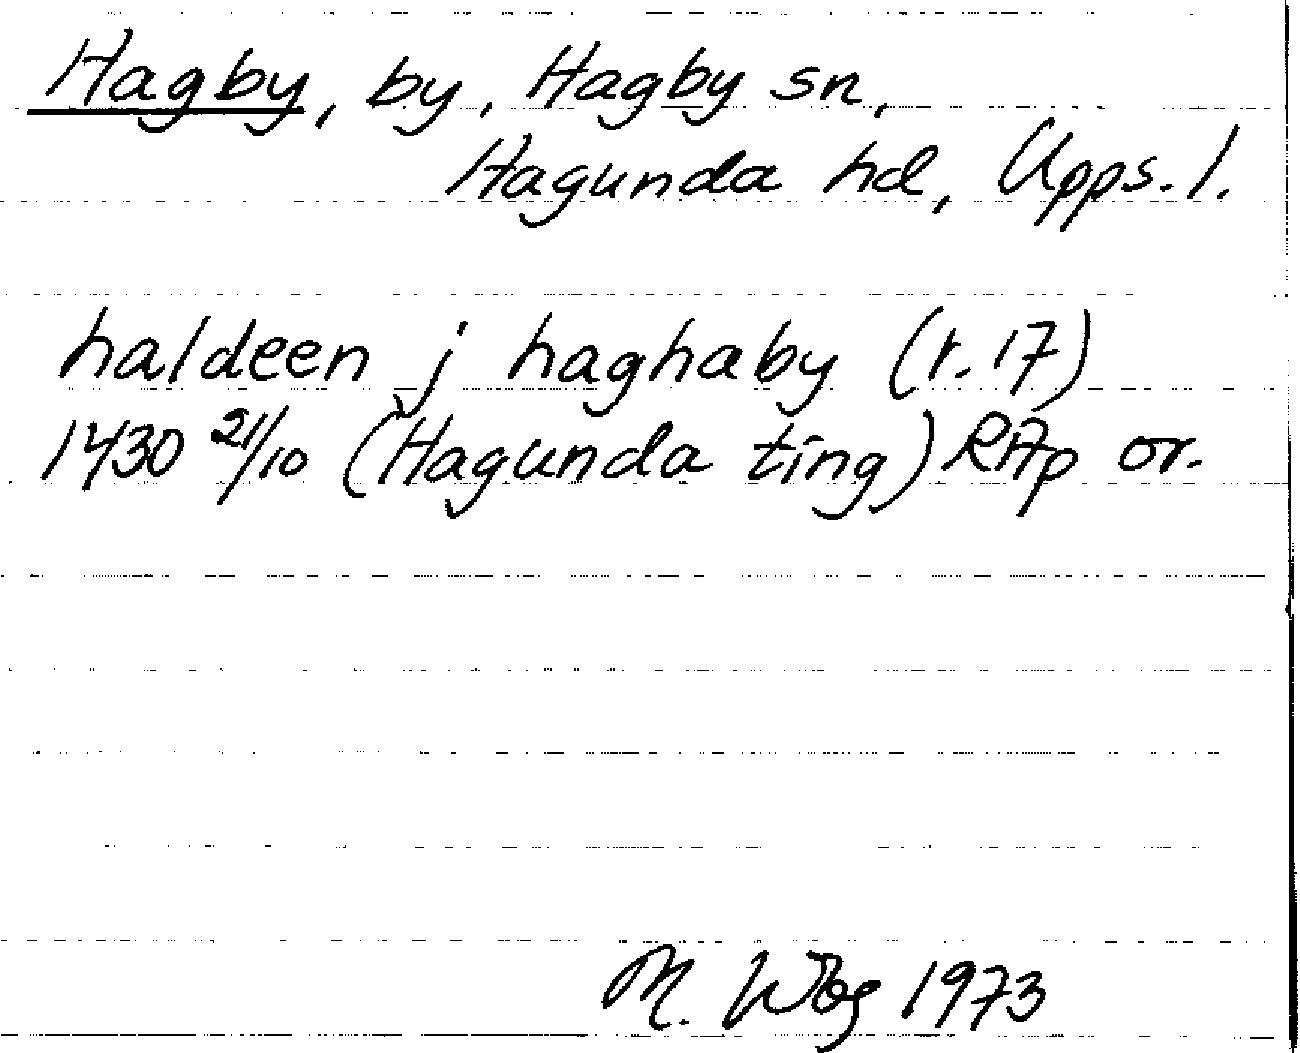 Hagby, by, Hagby sn,
Hagunda hd, Upps. l.
haldeen j haghaby (r. 17)
1430 21/10 (Hagunda ting) RAp or.
M. Wbg 1973